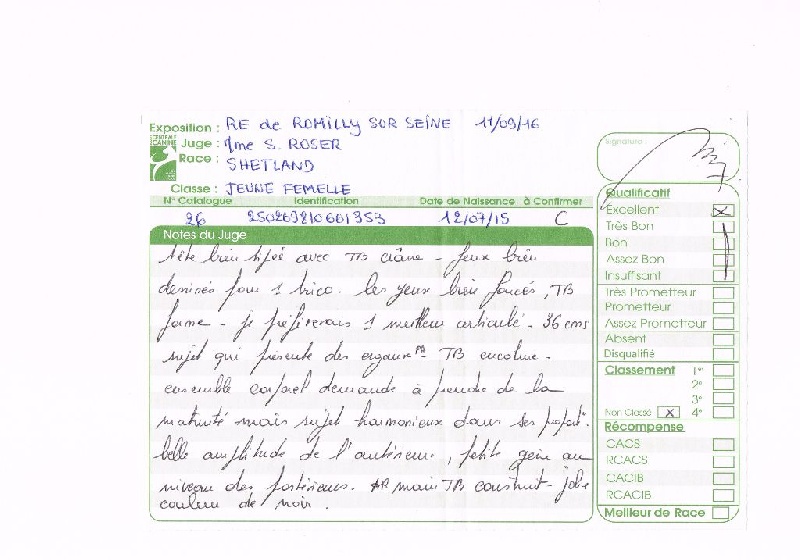 Exposition : RE de ROMILLY SUR SEINE 11/09/16
Juge : Mme S. ROSER
Race : SHETLAND
Classe : JEUNE FEMELLE
N° Catalogue Identification Date de Naissance à Confirmer
26 250269210601353 12/07/15 C
Notes du Juge
Tête bien typée avec TB crâne - Joues bien
dessinés pour 1 trico. les yeux bien foncés, TB
forme - je préfèrerais 1 meilleur articulé - 36 cms
sujet qui présente des TB encolure -
ensemble corporel demande à prendre de la
maturité mais sujet harmonieux dans ses
belle amplitude de l'antérieur, petite au
niveau des postérieurs. AR main TB construit - jolie
couleur de noir.
Signature :
Qualificatif
Excellent X
Très Bon
Bon
Assez Bon
Insuffisant
Très Prometteur
Prometteur
Assez Prometteur
Absent
Disqualifié
Classement 1°
2°
3°
Non Classé X 4°
Récompense
CACS
RCACS
CACIB
RCACIB
Meilleur de Race